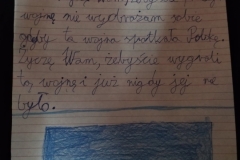 wojnę nie wyobrażam sobie
gdyby ta wojna spotkała Polskę.
Życzę Wam, żebyście wygrali
tą wojnę i już nigdy jej nie
było.